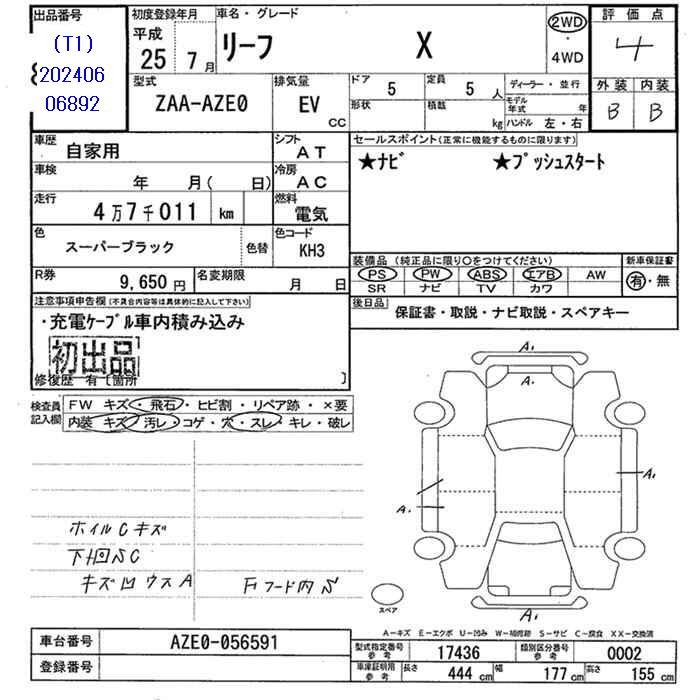 出品番号
(T1)
202406
06892
初度登録年月
平成
25年 7月
車名・グレード
リーフ X
2WD
・
4WD
評価点
4
外装 内装
B B
型式
ZAA-AZE0
排気量
EV
CC
ドア
5
定員
5人
形状
積載
kg
ディーラー・並行
モデル年式 年
ハンドル 左・右
車歴
自家用
シフト
AT
車検
年 月( 日)
冷房
AC
走行
4万7千011 km
燃料
電気
色
スーパーブラック
色替
色コード
KH3
R券
9,650円
名変期限
月 日
セールスポイント(正常に機能するものに限ります)
★ナビ ★プッシュスタート
装備品(純正品に限り○をつけてください)
PS PW ABS エアB AW
SR ナビ TV カワ
新車保証書
有・無
後日品
保証書・取説・ナビ取説・スペアキー
注意事項申告欄(不具合内容等は具体的に記入して下さい)
・充電ケーブル車内積み込み
初出品
修復歴 有[箇所 ]
検査員記入欄
FW キズ・飛石・ヒビ割・リペア跡・×要
内装 キズ・汚レ・コゲ・穴・スレ・キレ・破レ
ホイルCキズ
下回SC
キズ凹ウスA
Fフード内S
A1
A1
A1
A1
A1
A1
スペア
A-キズ E-エクボ U-凹み W-補修跡 S-サビ C-腐食 XX-交換済
車台番号
AZE0-056591
登録番号
型式指定番号 参考
17436
類別区分番号 参考
0002
車庫証明用 参考
長さ 444 cm 幅 177 cm 高さ 155 cm